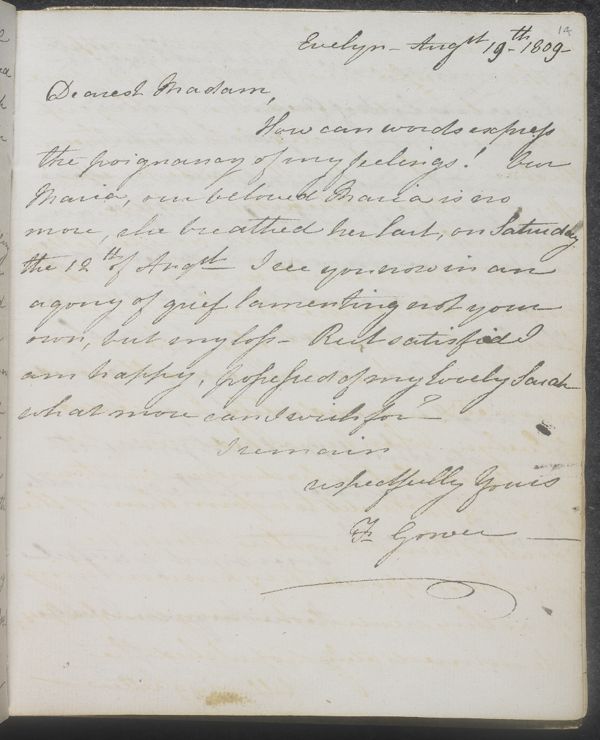 14
Evelyn - Augst 19th - 1809 -
Dearest Madam,
How can words express
the poignancy of my feelings! Our
Maria, our beloved Maria is no
more, she breathed her last, on Saturday
the 12th of Augst I see you now in an
agony of grief lamenting not your
own, but my loss - Rest satisfied I
am happy, possessed of my lovely Sarah
what more can I wish for?
I remain
respectfully Yours
Fr Gower